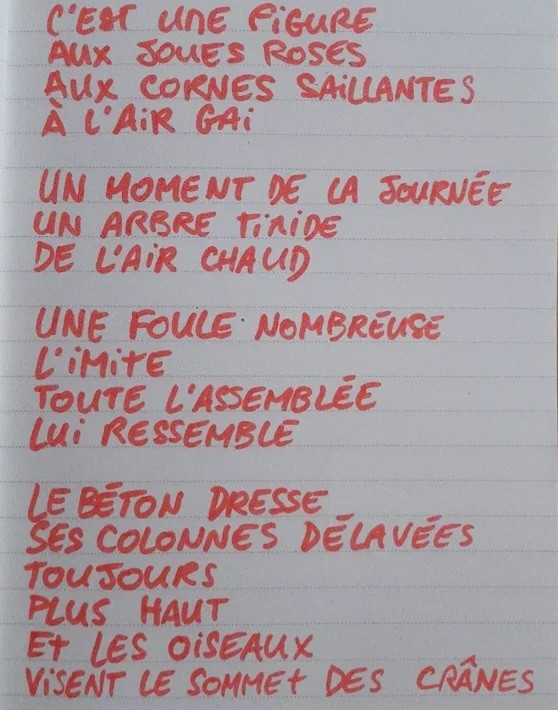 C'EST UNE FIGURE
AUX JOUES ROSES
AUX CORNES SAILLANTES
À L'AIR GAI
UN MOMENT DE LA JOURNÉE
UN ARBRE TIMIDE
DE L'AIR CHAUD
UNE FOULE NOMBREUSE
L'IMITE
TOUTE L'ASSEMBLÉE
LUI RESSEMBLE
LE BÉTON DRESSE
SES COLONNES DÉLAVÉES
TOUJOURS
PLUS HAUT
ET LES OISEAUX
VISENT LE SOMMET DES CRÂNES